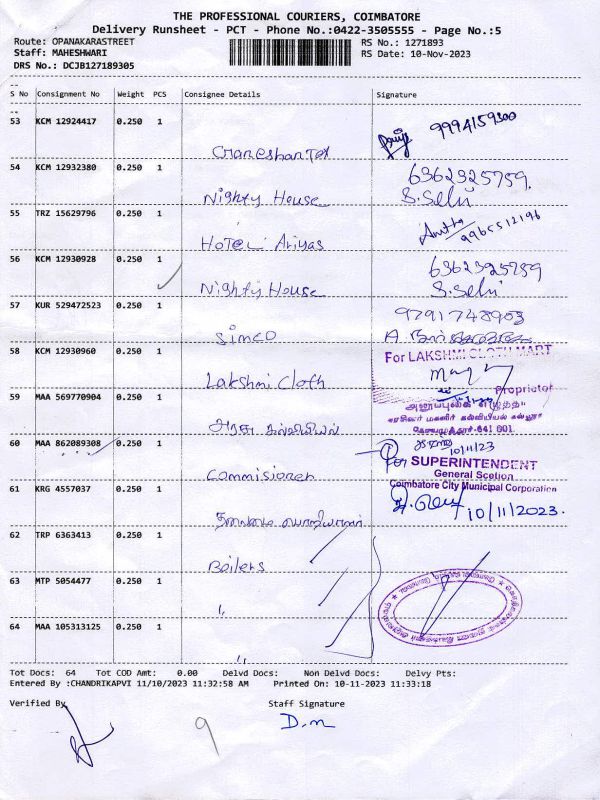 THE PROFESSIONAL COURIERS, COIMBATORE
Delivery Runsheet - PCT - Phone No.:0422-3505555 - Page No.:5
Route: OPANAKARASTREET RS No.: 1271893
Staff: MAHESHWARI RS Date: 10-Nov-2023
DRS No.: DCJB127189305
S No Consignment No Weight PCS Consignee Details Signature
53 KCM 12924417 0.250 1 9994159300
54 KCM 12932380 0.250 1 6362325759.
Nighty House S.Selvi
55 TRZ 15629796 0.250 1
Hotel Ariyas 9965512196
56 KCM 12930928 0.250 1 6362325759
Nighty House S.Selvi
57 KUR 529472523 0.250 1 9791748903
Simco
58 KCM 12930960 0.250 1 For LAKSHMI CLOTH MART
Lakshmi Cloth
Proprietor
59 MAA 569770904 0.250 1
அரசு
60 MAA 862089308 0.250 1 10/11/23
For SUPERINTENDENT
Commisioner General Scetion
61 KRG 4557037 0.250 1 Coimbatore City Municipal Corporation
10/11/2023.
62 TRP 6363413 0.250 1
Boilers
63 MTP 5054477 0.250 1
"
64 MAA 105313125 0.250 1
"
Tot Docs: 64 Tot COD Amt: 0.00 Delvd Docs: Non Delvd Docs: Delvy Pts:
Entered By :CHANDRIKAPVI 11/10/2023 11:32:58 AM Printed On: 10-11-2023 11:33:18
Verified By Staff Signature
9 D.m